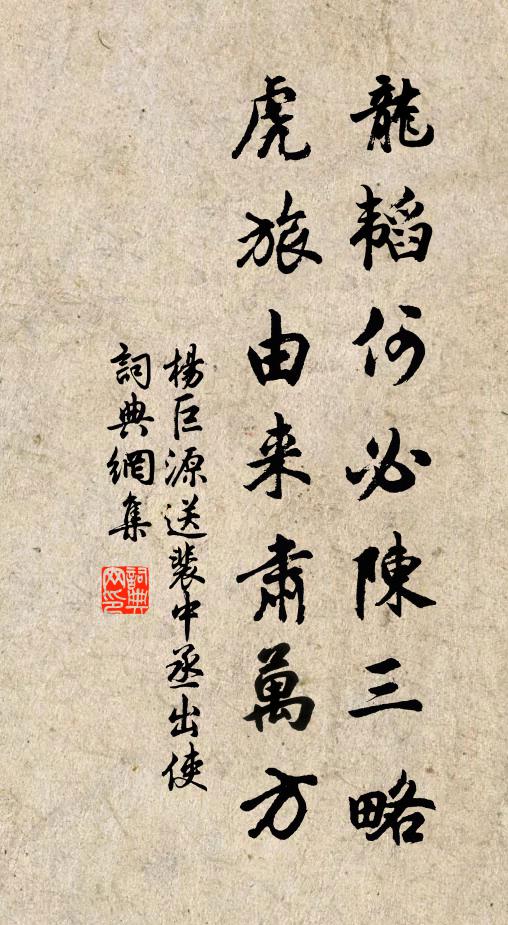 龍韜何必陳三略
虎旅由来肅萬方
楊巨源送裴中丞出使
詞典網集
詞典网印